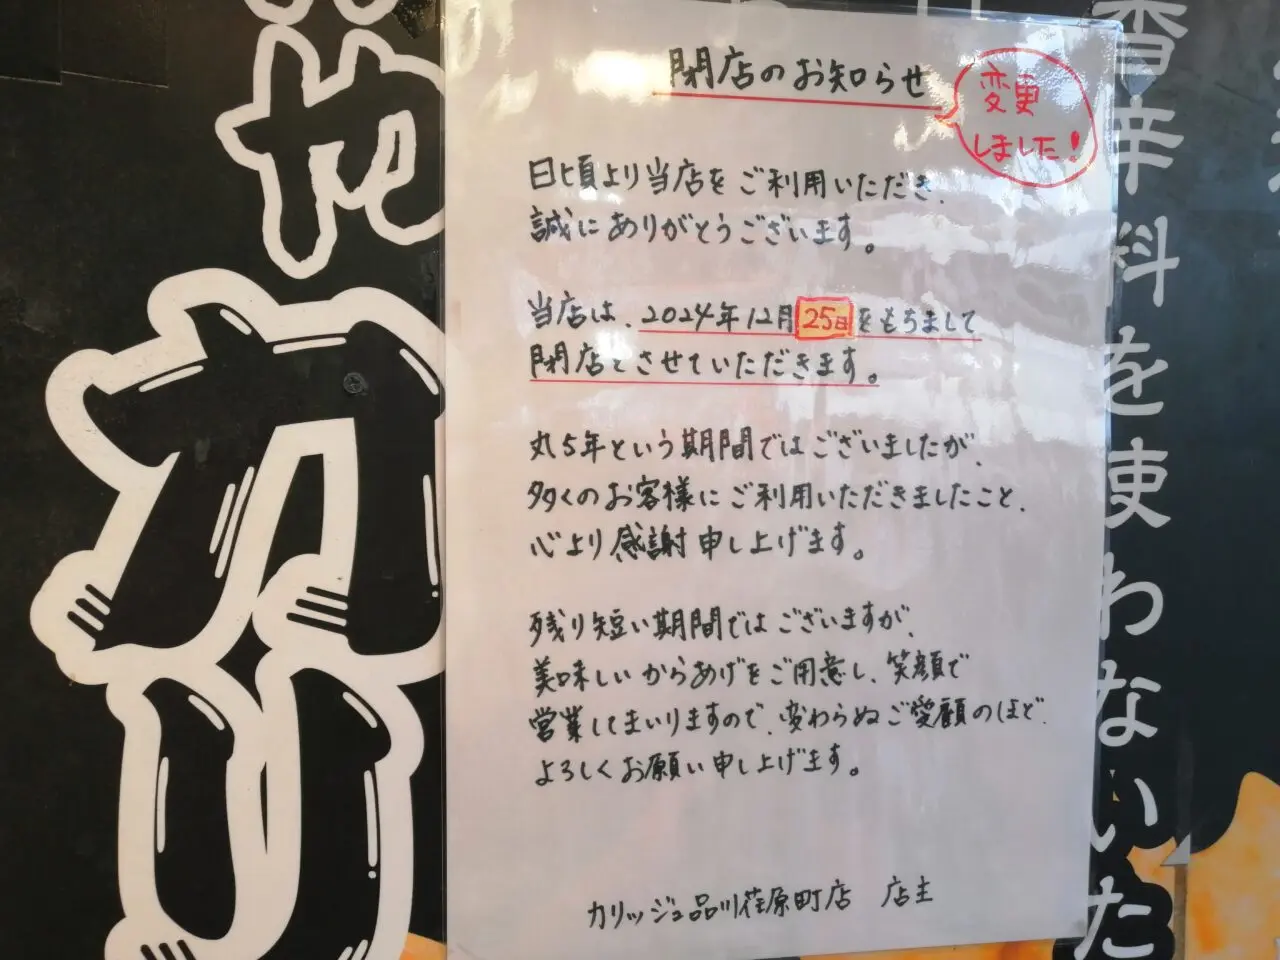 閉店のお知らせ
変更
しました!
日頃より当店をご利用いただき、
誠にありがとうございます。
当店は、2024年12月25日をもちまして
閉店とさせていただきます。
丸5年という期間ではございましたが、
多くのお客様にご利用いただきましたこと、
心より感謝申し上げます。
残り短い期間ではございますが、
美味しいからあげをご用意し、笑顔で
営業してまいりますので、変わらぬご愛顧のほど、
よろしくお願い申し上げます。
カリッジュ品川荏原町店 店主
カリ
香辛料を使わないた